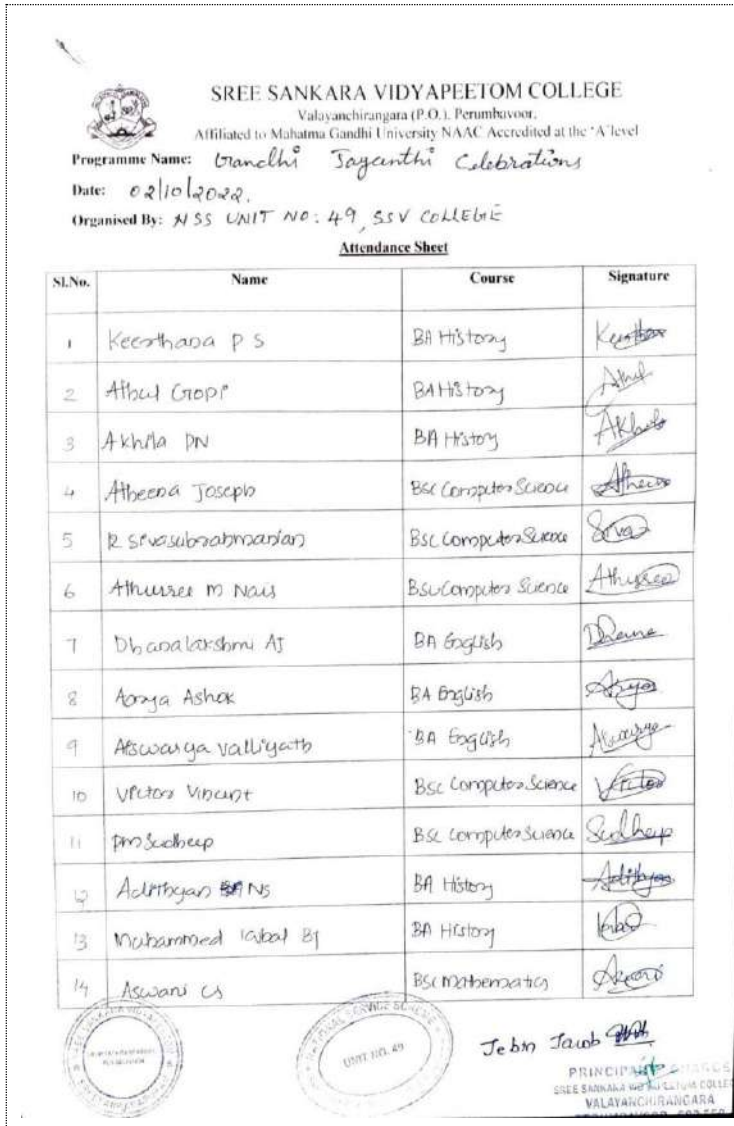 SREE SANKARA VIDYAPEETOM COLLEGE
Valayanchirangara (P.O.), Perumbavoor,
Affiliated to Mahatma Gandhi University NAAC Accredited at the 'A' level
Programme Name: Gandhi Jayanthi Celebrations
Date: 02/10/2022.
Organised By: NSS UNIT NO: 49, SSV COLLEGE
Attendance Sheet
Sl.No. Name Course Signature
1 Keerthana P S BA History
2 Athul Gopi BA History Athul
3 Akhila PN BA History
4 Atheena Joseph BSc Computer Science
5 R Sivasubrahmanian BSc Computer Science Siva
6 Athusree M Nair BSc Computer Science Athusree
7 Dhanalakshmi AJ BA English
8 Aarya Ashok BA English
9 Aiswarya Valliyath BA English
10 Victor Vincent BSc Computer Science Victor
11 PM Sudheep BSc Computer Science Sudheep
12 Adithyan NS BA History Adithyan
13 Muhammed Iqbal BJ BA History
14 Aswani CS BSc Mathematics
NATIONAL SERVICE SCHEME
UNIT NO. 49
Jebin Jacob
PRINCIPAL
SREE SANKARA VIDYAPEETOM COLLEGE
VALAYANCHIRANGARA